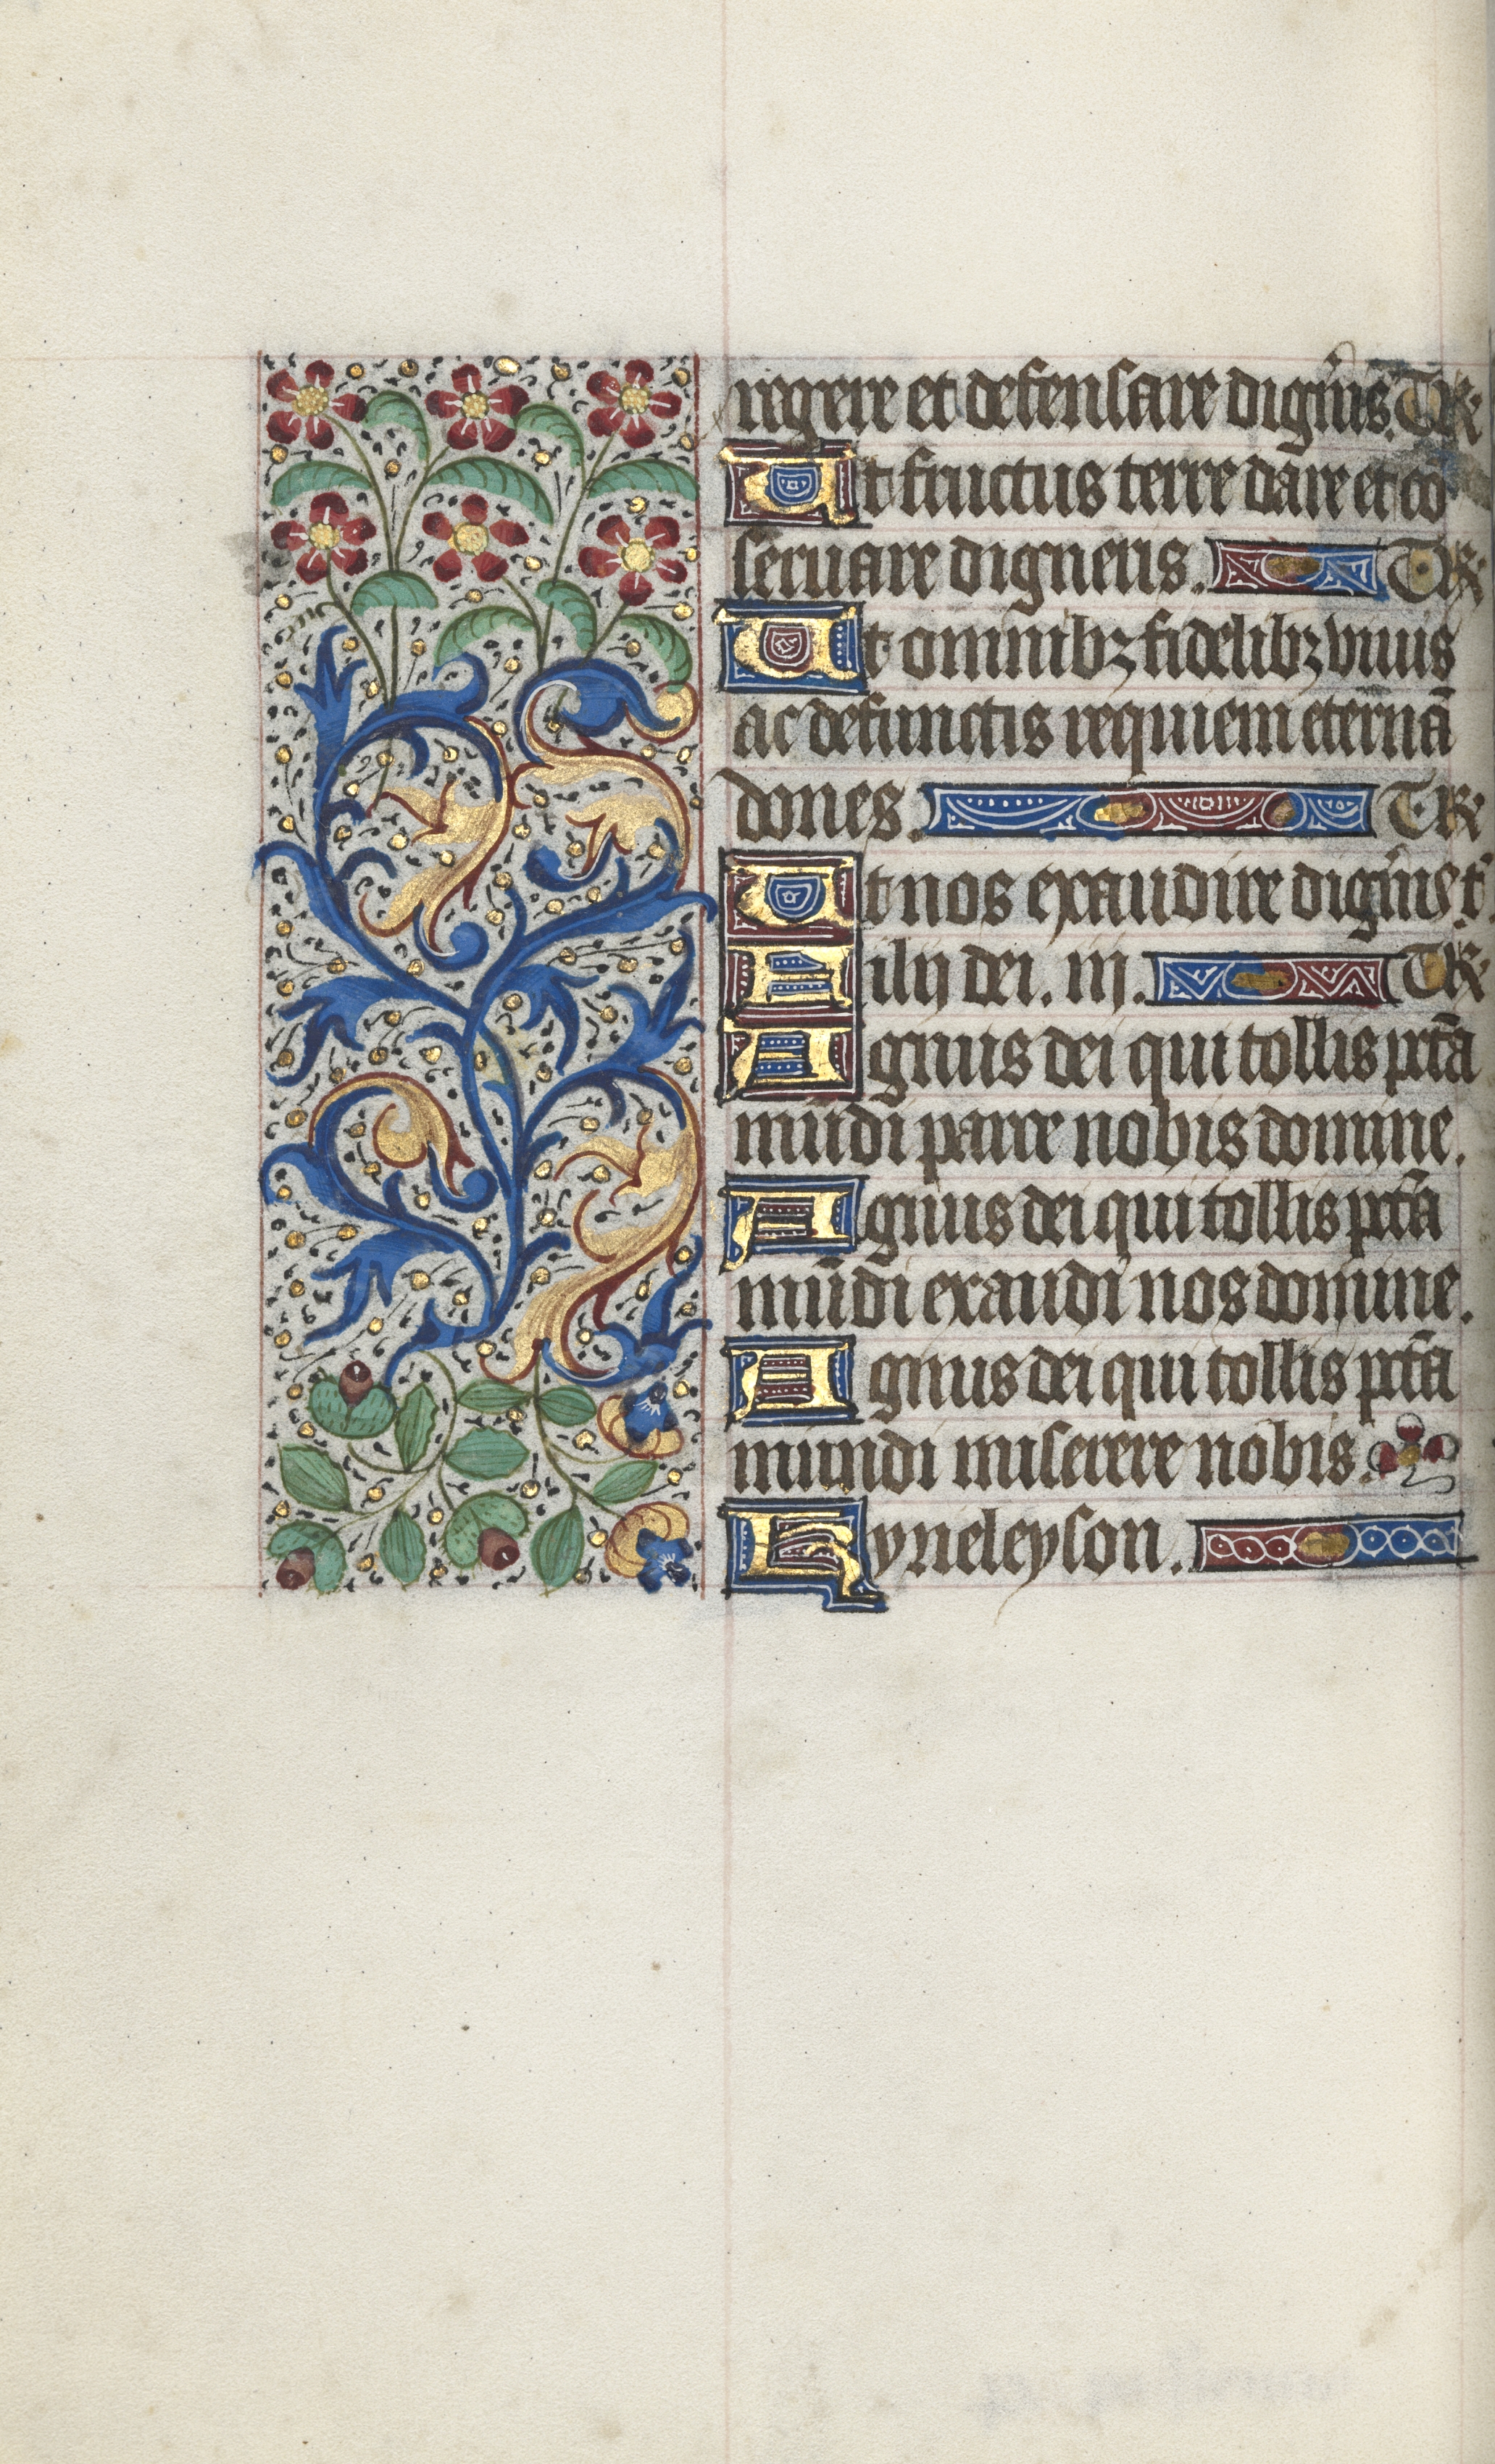 regere et defensare dignis. T R
Ut fructus terre dare et cō
seruare digneris. T R
Ut omnibꝫ fidelibꝫ viuis
ac defunctis requiem eternā
dones. T R
Ut nos exaudire digneris t
Filij dei. iij. T R
Agnus dei qui tollis pctā
mūdi parce nobis domine.
Agnus dei qui tollis pctā
mūdi exaudi nos domine.
Agnus dei qui tollis pctā
mundi miserere nobis.
Kyrieleyson.